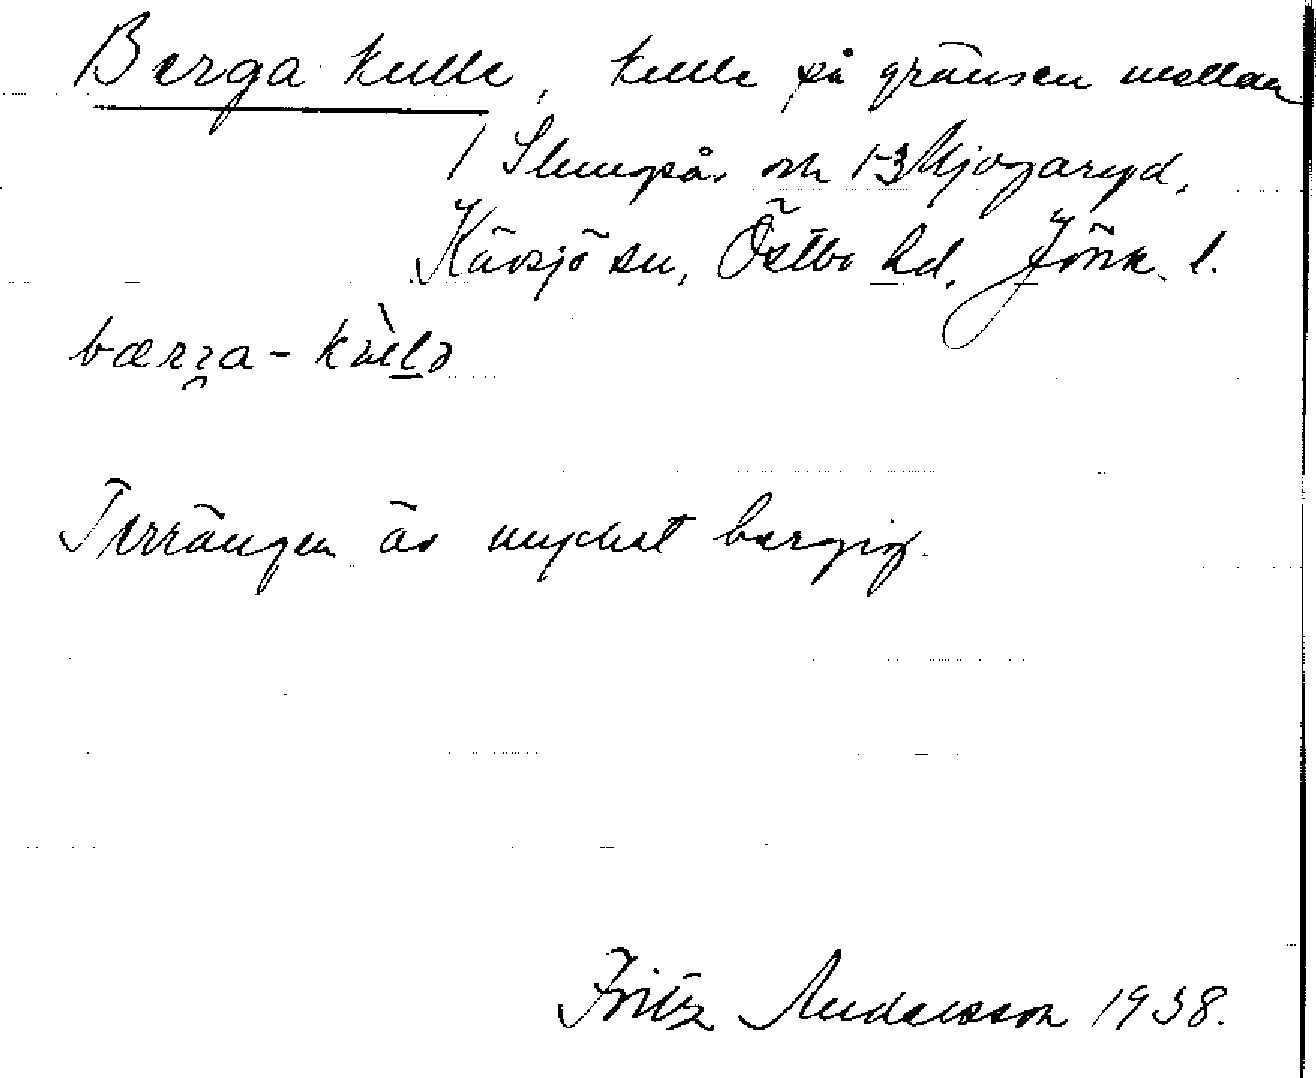 Berga kulle, kulle på gränsen mellan
1 Slungsås och 1-3 Mjogaryd,
Kävsjö sn, Östbo hd. Jönk. l.
bærra-
Terrängen är mycket bergig.
Fritz Andersson 1938.